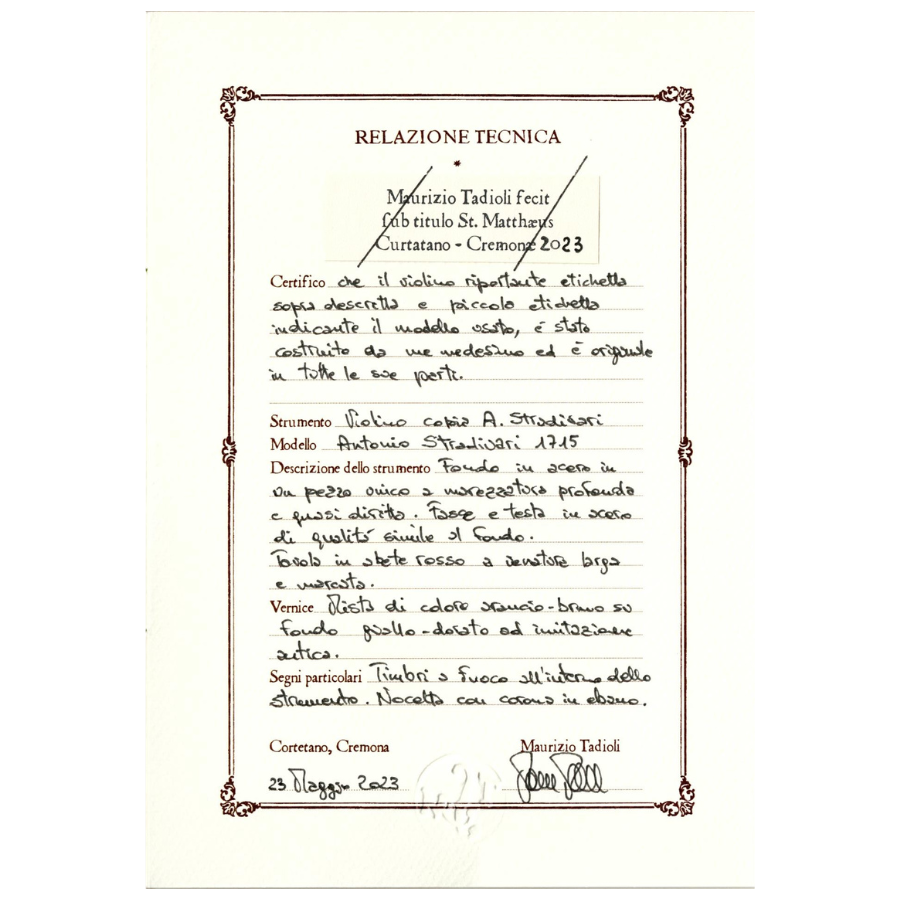 RELAZIONE TECNICA
*
Maurizio Tadioli fecit
sub titulo St. Matthæus
Curtatano - Cremonæ 2023
Certifico che il violino riportante etichetta
sopra descritta e piccola etichetta
indicante il modello usato, è stato
costruito da me medesimo ed è originale
in tutte le sue parti.
Strumento Violino copia A. Stradivari
Modello Antonio Stradivari 1715
Descrizione dello strumento Fondo in acero in
un pezzo unico a marezzatura profonda
e quasi diritta. Fasce e testa in acero
di qualità simile al fondo.
Tavola in abete rosso a venatura larga
e marcata.
Vernice Mista di colore arancio-bruno su
fondo giallo-dorato ad imitazione
antica.
Segni particolari Timbri a fuoco all'interno dello
strumento. Nocetta con corona in ebano.
Cortetano, Cremona
Maurizio Tadioli
23 Maggio 2023